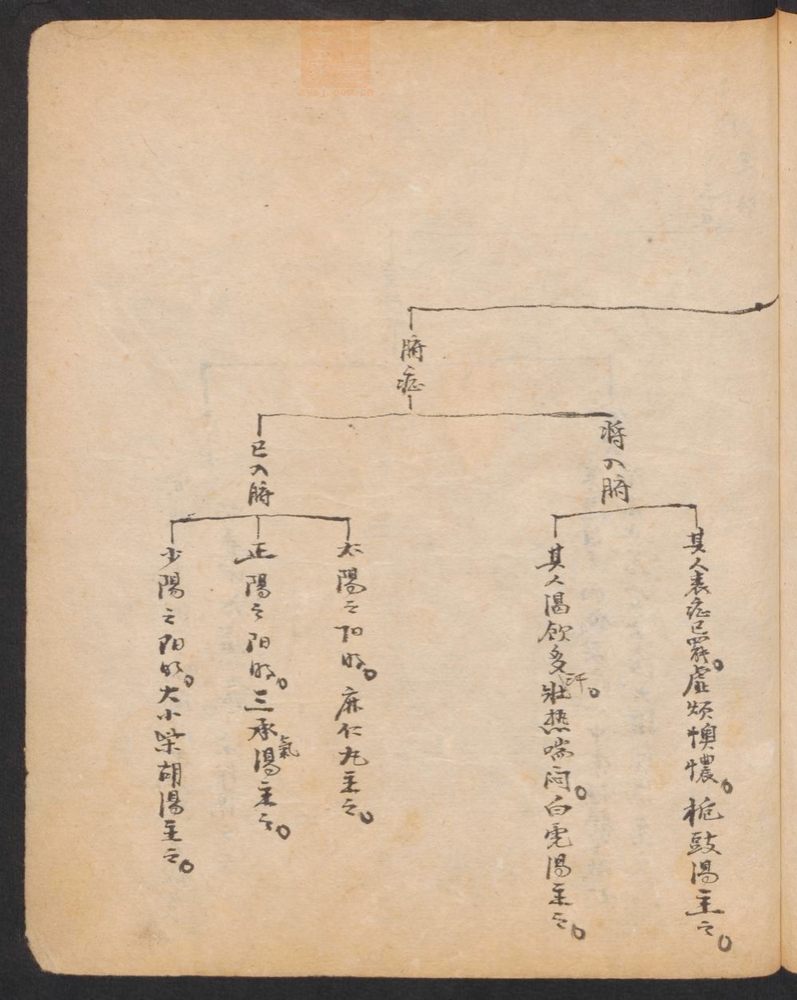 腑症
將入腑
其人表症已罷。虛煩懊憹。梔豉湯主之。
其人渴飲多汗。壯熱喘悶。白虎湯主之。
已入腑
太陽之陽明。麻仁丸主之。
正陽之阳明。三承氣湯主之。
少陽之阳明。大小柴胡湯主之。